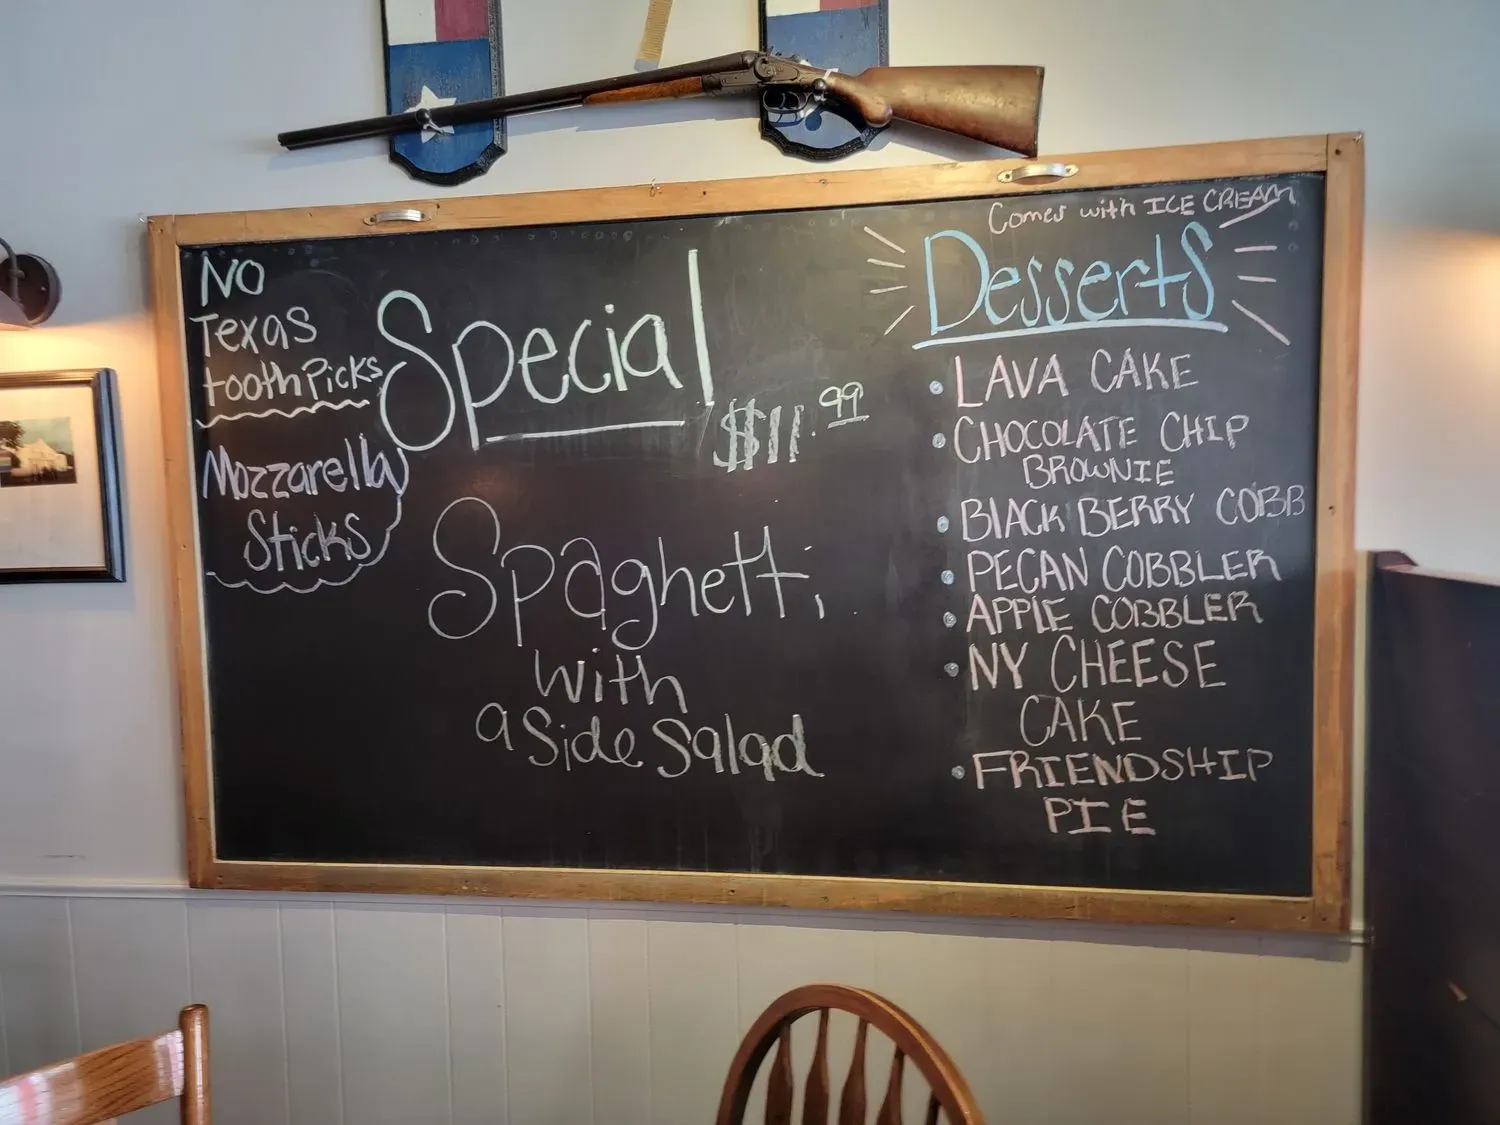 NO
Texas
toothPicks
Mozzarella
Sticks
Special
$11.99
Spaghetti
with
a Side Salad
Comes with ICE CREAM
Desserts
• LAVA CAKE
• CHOCOLATE CHIP
BROWNIE
• BLACK BERRY COBB
• PECAN COBBLER
• APPLE COBBLER
• NY CHEESE
CAKE
• FRIENDSHIP
PIE